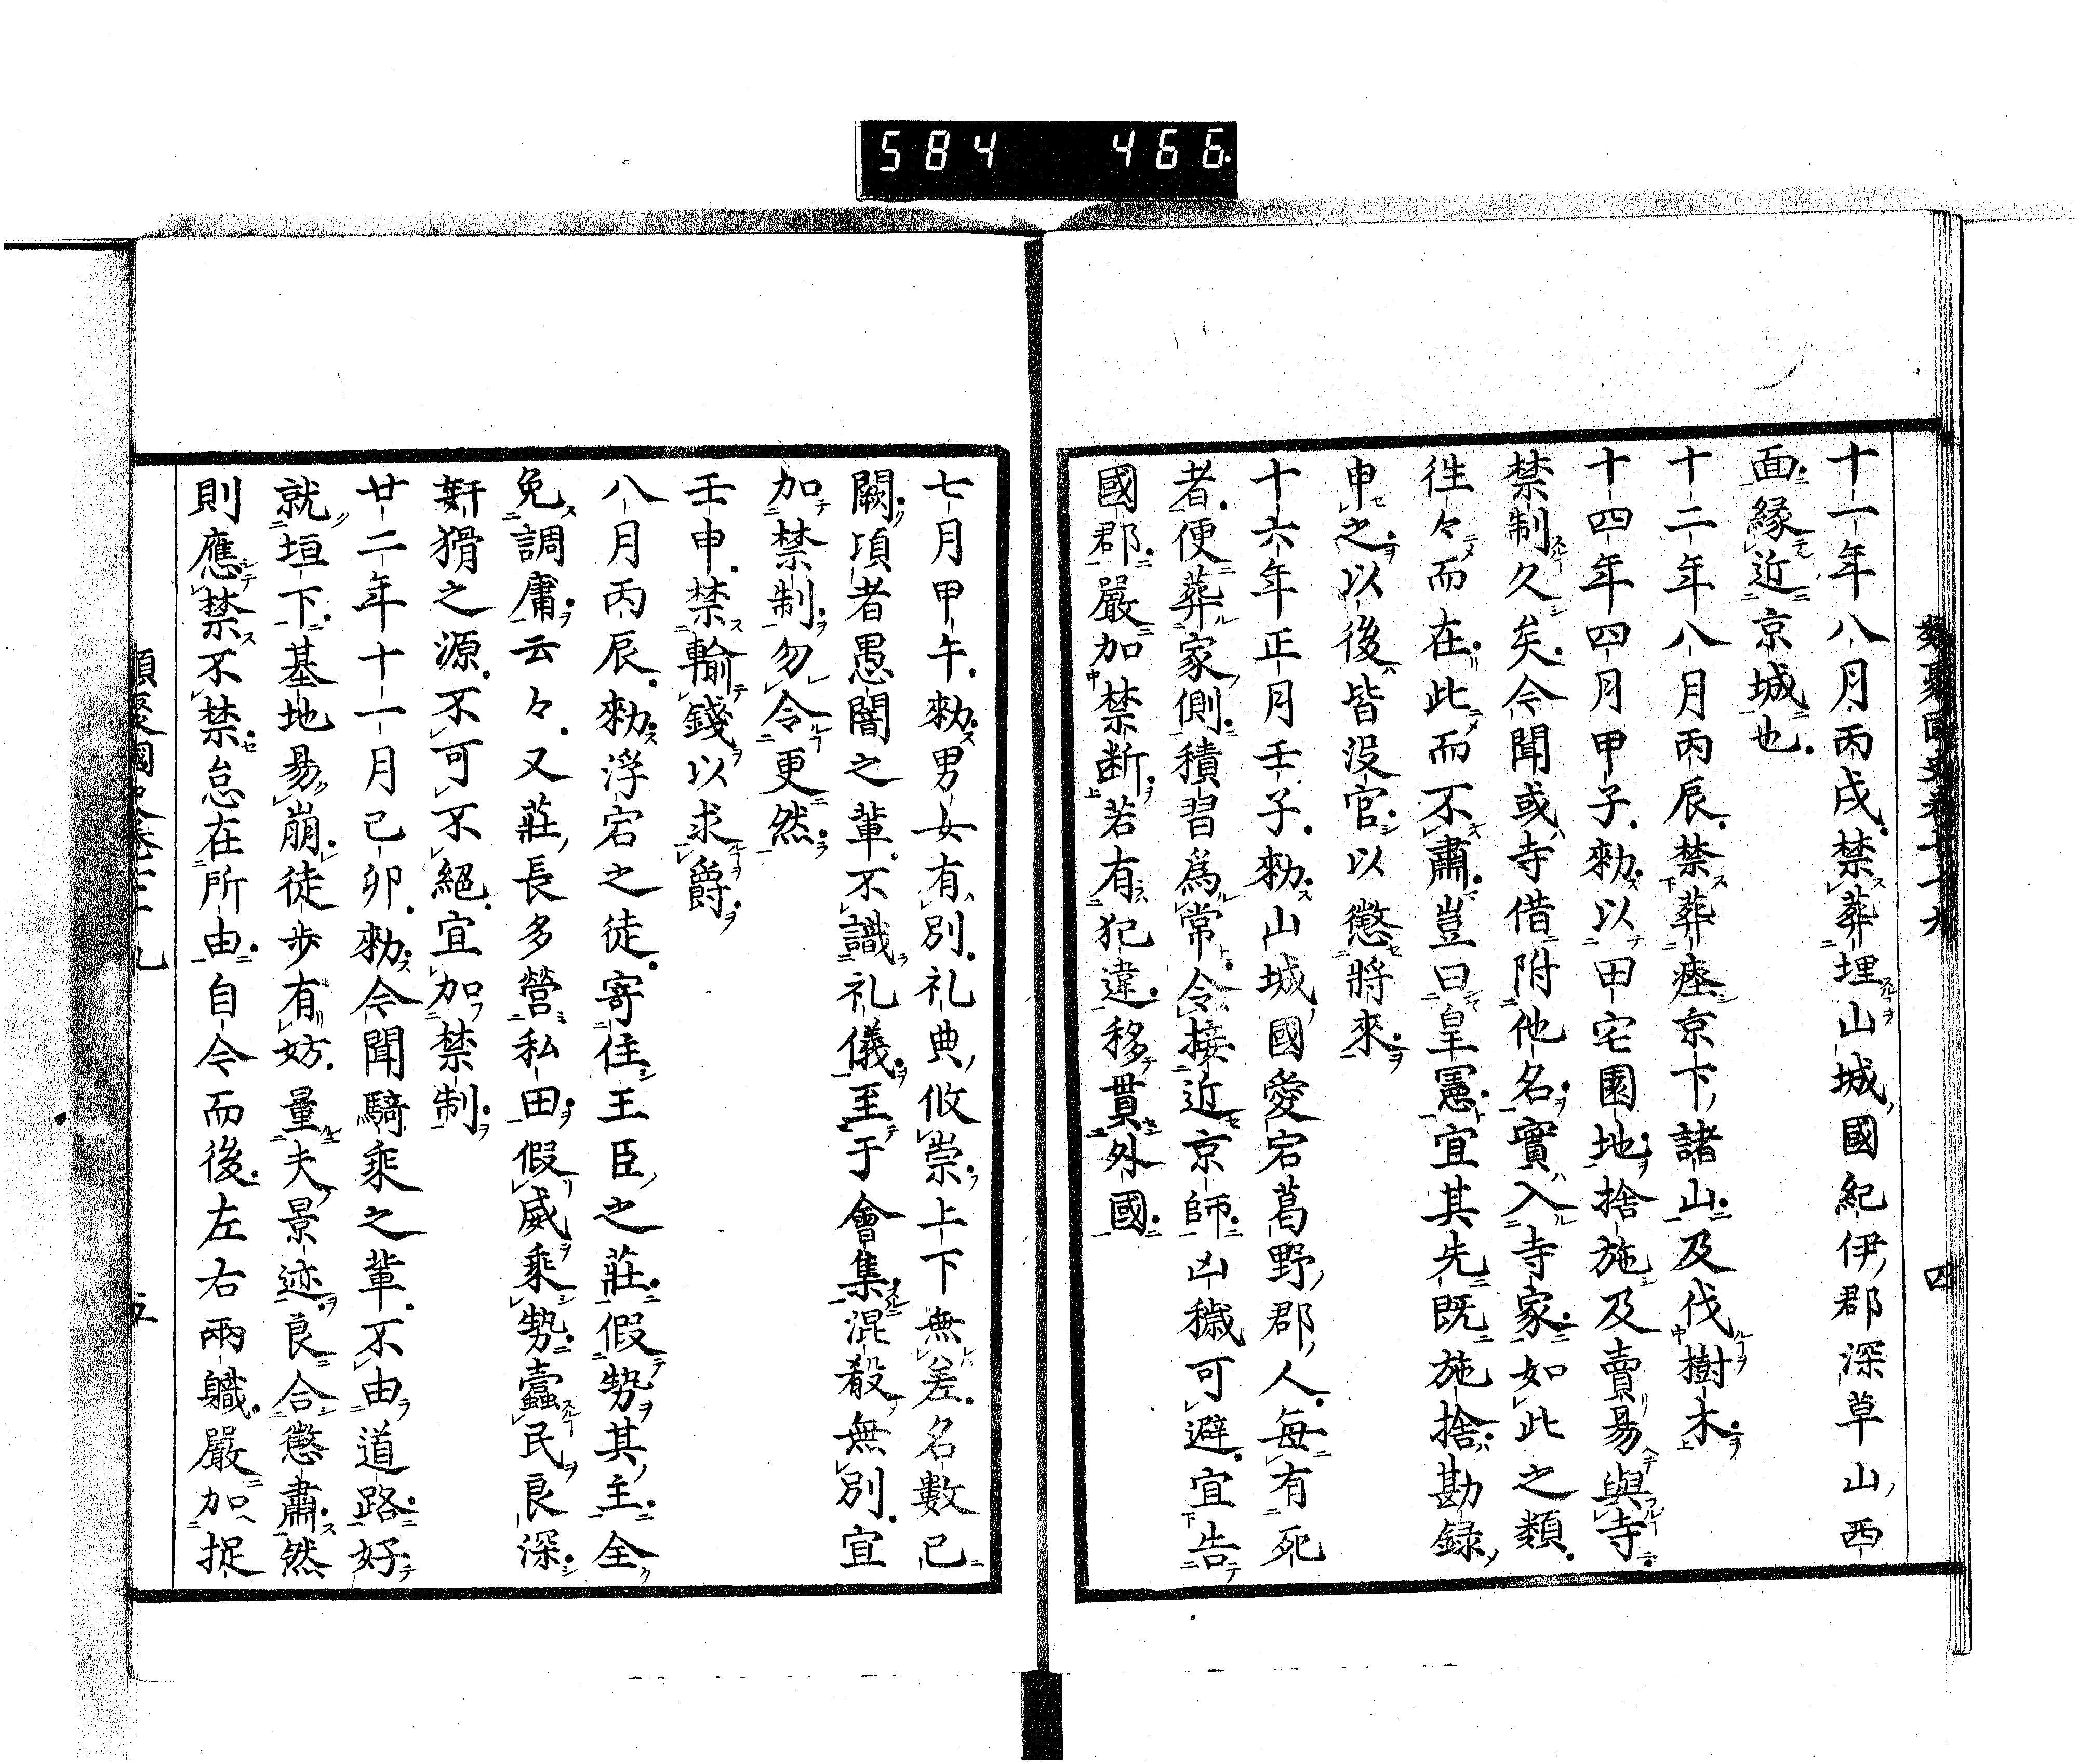 584 466
類聚國史卷七十九 四
十一年八月丙戌禁葬埋山城國紀伊郡深草山西
面縁近京城也
十二年八月丙辰禁葬瘞京下諸山及伐樹木
十四年四月甲子勑以田宅園地捨施及賣易與寺
禁制久矣今聞或寺借附他名實入寺家如此之類
徃々而在此而不肅豈曰皇憲宜其先既施捨勘録
申之以後皆没官以懲將來
十六年正月壬子勑山城國愛宕葛野郡人毎有死
者便葬家側積習爲常今接近京師凶穢可避宜告
國郡嚴加禁断若有犯違移貫外國
七月甲午勑男女有別礼典攸崇上下無差名數已
闕項者愚闇之輩不識礼儀至于會集混殽無別宜
加禁制勿令更然
壬申禁輸錢以求爵
八月丙辰勑浮宕之徒寄住王臣之莊假勢其主全
免調庸云々又莊長多營私田假威乘勢蠹民良深
姧猾之源不可不絕宜加禁制
廿二年十一月己卯勑今聞騎乘之輩不由道路好
就垣下基地易崩徒步有妨量夫景迹良合懲肅然
則應禁不禁怠在所由自今而後左右兩職嚴加捉
類聚國史卷七十九 五